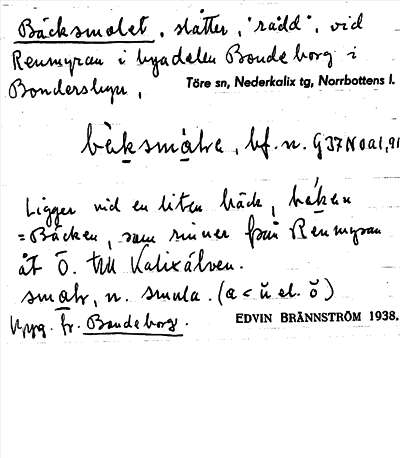 Bäcksmalet, slåtter, "rådd", vid
Renmyran i byadelen Bondeborg i
Bondersbyn,
Töre sn, Nederkalix tg, Norrbottens l.
bf. n. G 37 N
Ligger vid en liten bäck,
= Bäcken, som rinner från Renmyran
åt Ö. till Kalixälven.
smalr, n. smula. (a < ŭ el. ŏ)
Uppg. fr. Bondeborg.
EDVIN BRÄNNSTRÖM 1938.